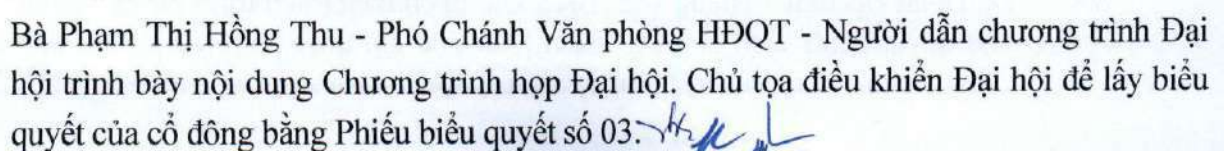 Bà Phạm Thị Hồng Thu - Phó Chánh Văn phòng HĐQT - Người dẫn chương trình Đại
hội trình bày nội dung Chương trình họp Đại hội. Chủ tọa điều khiển Đại hội để lấy biểu
quyết của cổ đông bằng Phiếu biểu quyết số 03.